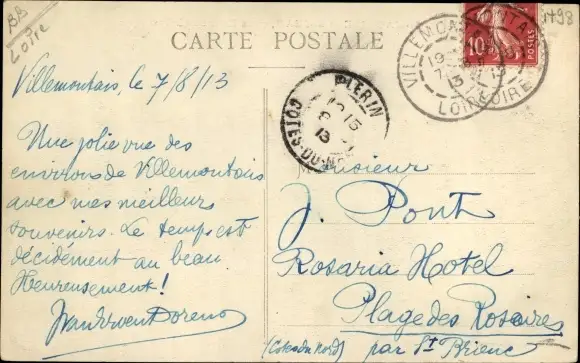 BB
Loire
CARTE POSTALE
1498
10
POSTES
VILLEMONTAIS
LOIRE
LOIRE
PLERIN
COTES-DU-N
Villemontais, le 7/8/13
Une jolie vue des
environs de Villemontais
avec mes meilleurs
souvenirs. Le temps est
décidément au beau
Heureusement!
Monsieur
J. Pont
Rosaria Hotel
Plage des Rosaires
(Côtes du Nord) par St Brieuc